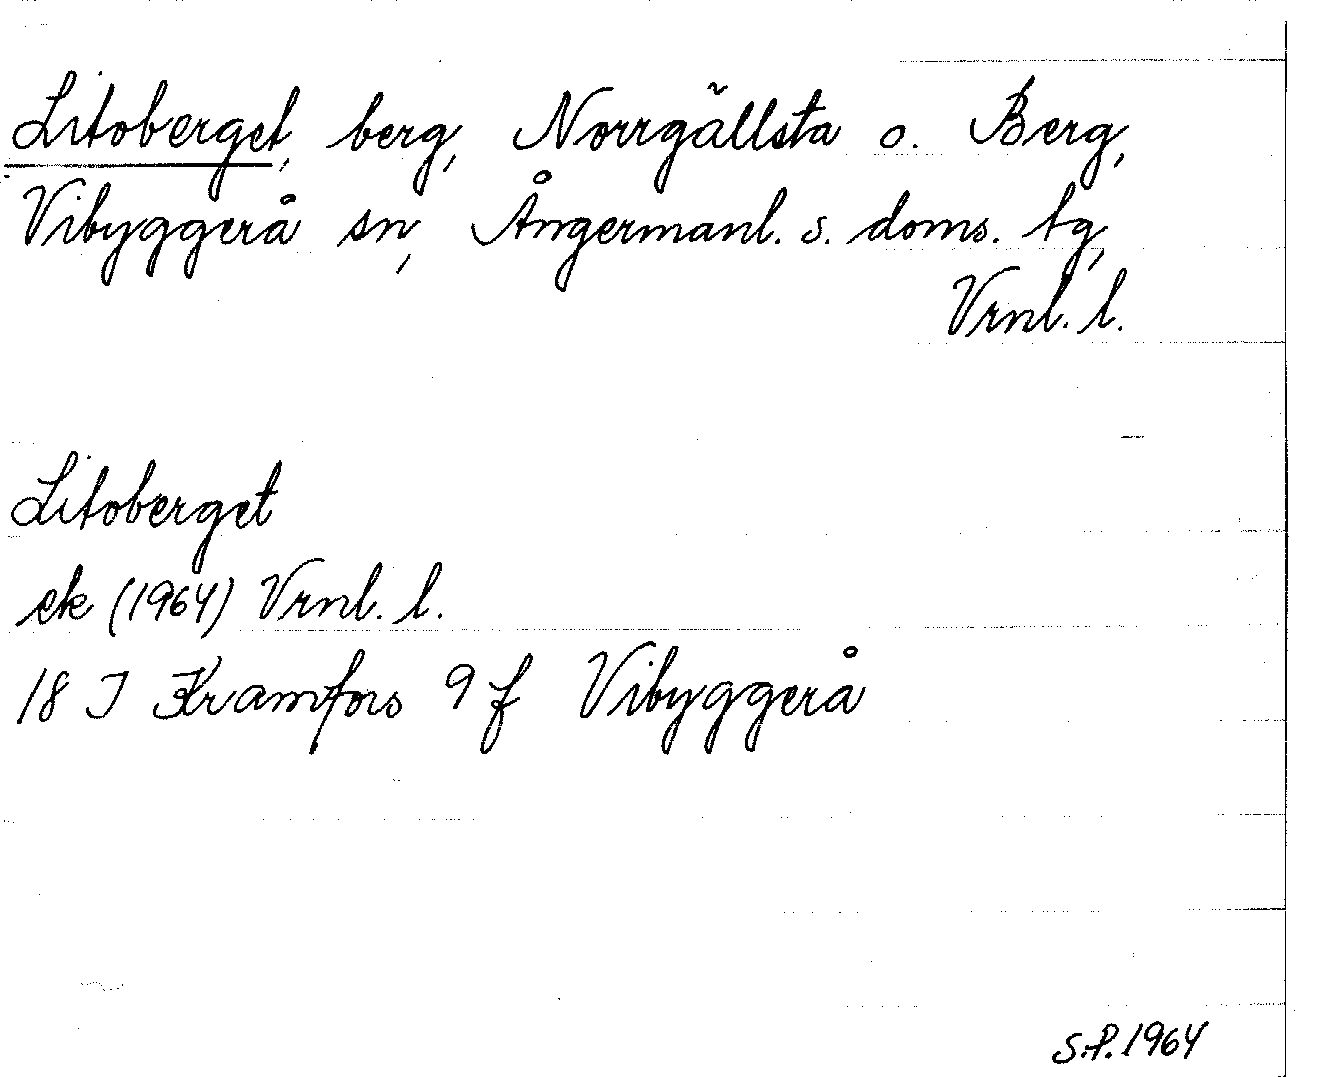 Litoberget, berg, Norrgällsta o. Berg,
Vibyggerå sn, Ångermanl. s. doms. tg,
Vrnl. l.
Litoberget
ek (1964) Vrnl. l.
18 I Kramfors 9 f Vibyggerå
S.P. 1964